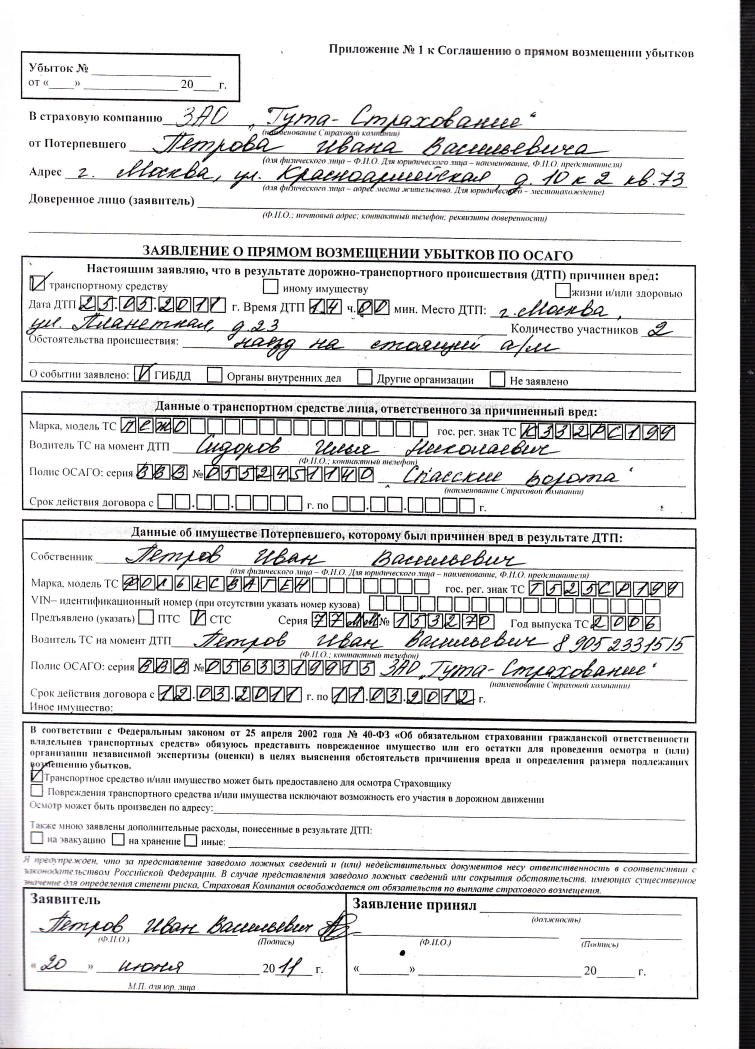 Приложение № 1 к Соглашению о прямом возмещении убытков
Убыток № ____________
от «____» ____________ 20____г.
В страховую компанию ЗАО „Гута-Страхование“
(наименование Страховой компании)
от Потерпевшего Петрова Ивана Васильевича
(для физического лица – Ф.И.О. Для юридического лица – наименование, Ф.И.О. представителя)
Адрес г. Москва, ул. Красноармейская, д. 10 к 2 кв. 73
(для физического лица – адрес места жительства. Для юридического – местонахождение)
Доверенное лицо (заявитель)
(Ф.И.О.; почтовый адрес; контактный телефон; реквизиты доверенности)
ЗАЯВЛЕНИЕ О ПРЯМОМ ВОЗМЕЩЕНИИ УБЫТКОВ ПО ОСАГО
Настоящим заявляю, что в результате дорожно-транспортного происшествия (ДТП) причинен вред:
☑ транспортному средству ☐ иному имуществу ☐ жизни и/или здоровью
Дата ДТП 25.03.2011 г. Время ДТП 14 ч. 00 мин. Место ДТП: г. Москва,
ул. Планетная, д 23 Количество участников 2
Обстоятельства происшествия: наезд на стоящий а/м
О событии заявлено: ☑ ГИБДД ☐ Органы внутренних дел ☐ Другие организации ☐ Не заявлено
Данные о транспортном средстве лица, ответственного за причиненный вред:
Марка, модель ТС ПЕЖО гос. рег. знак ТС К332РС199
Водитель ТС на момент ДТП Сидоров Илья Николаевич
(Ф.И.О.; контактный телефон)
Полис ОСАГО: серия ВВВ № 0552451140 „Спасские ворота“
(наименование Страховой компании)
Срок действия договора с ☐☐.☐☐.☐☐☐☐ г. по ☐☐.☐☐.☐☐☐☐ г.
Данные об имуществе Потерпевшего, которому был причинен вред в результате ДТП:
Собственник Петров Иван Васильевич
(для физического – Ф.И.О. Для юридического лица – наименование, Ф.И.О. представителя)
Марка, модель ТС ФОЛЬКСВАГЕН гос. рег. знак ТС Т525СР199
VIN– идентификационный номер (при отсутствии указать номер кузова)
Предъявлено (указать) ☐ ПТС ☑ СТС Серия 77 № 153270 Год выпуска ТС 2006
Водитель ТС на момент ДТП Петров Иван Васильевич 8 905 2331515
(Ф.И.О.; контактный телефон)
Полис ОСАГО: серия ВВВ № 0563319915 ЗАО „Гута-Страхование“
(наименование Страховой компании)
Срок действия договора с 12.03.2011 г. по 11.03.2012 г.
Иное имущество:
В соответствии с Федеральным законом от 25 апреля 2002 года № 40-ФЗ «Об обязательном страховании гражданской ответственности
владельцев транспортных средств» обязуюсь представить поврежденное имущество или его остатки для проведения осмотра и (или)
организации независимой экспертизы (оценки) в целях выяснения обстоятельств причинения вреда и определения размера подлежащих
возмещению убытков.
☑ Транспортное средство и/или имущество может быть предоставлено для осмотра Страховщику
☐ Повреждения транспортного средства и/или имущества исключают возможность его участия в дорожном движении
Осмотр может быть произведен по адресу:
Также мною заявлены дополнительные расходы, понесенные в результате ДТП:
☐ на эвакуацию ☐ на хранение ☐ иные:
Я предупрежден, что за представление заведомо ложных сведений и (или) недействительных документов несу ответственность в соответствии с
законодательством Российской Федерации. В случае представления заведомо ложных сведений или сокрытия обстоятельств, имеющих существенное
значение для определения степени риска, Страховая Компания освобождается от обязательств по выплате страхового возмещения.
Заявитель
Петров Иван Васильевич
(Ф.И.О.) (Подпись)
« 20 » июня 20 11 г.
М.П. для юр. лица
Заявление принял
(должность)
(Ф.И.О.) (Подпись)
«________» ____________ 20______ г.